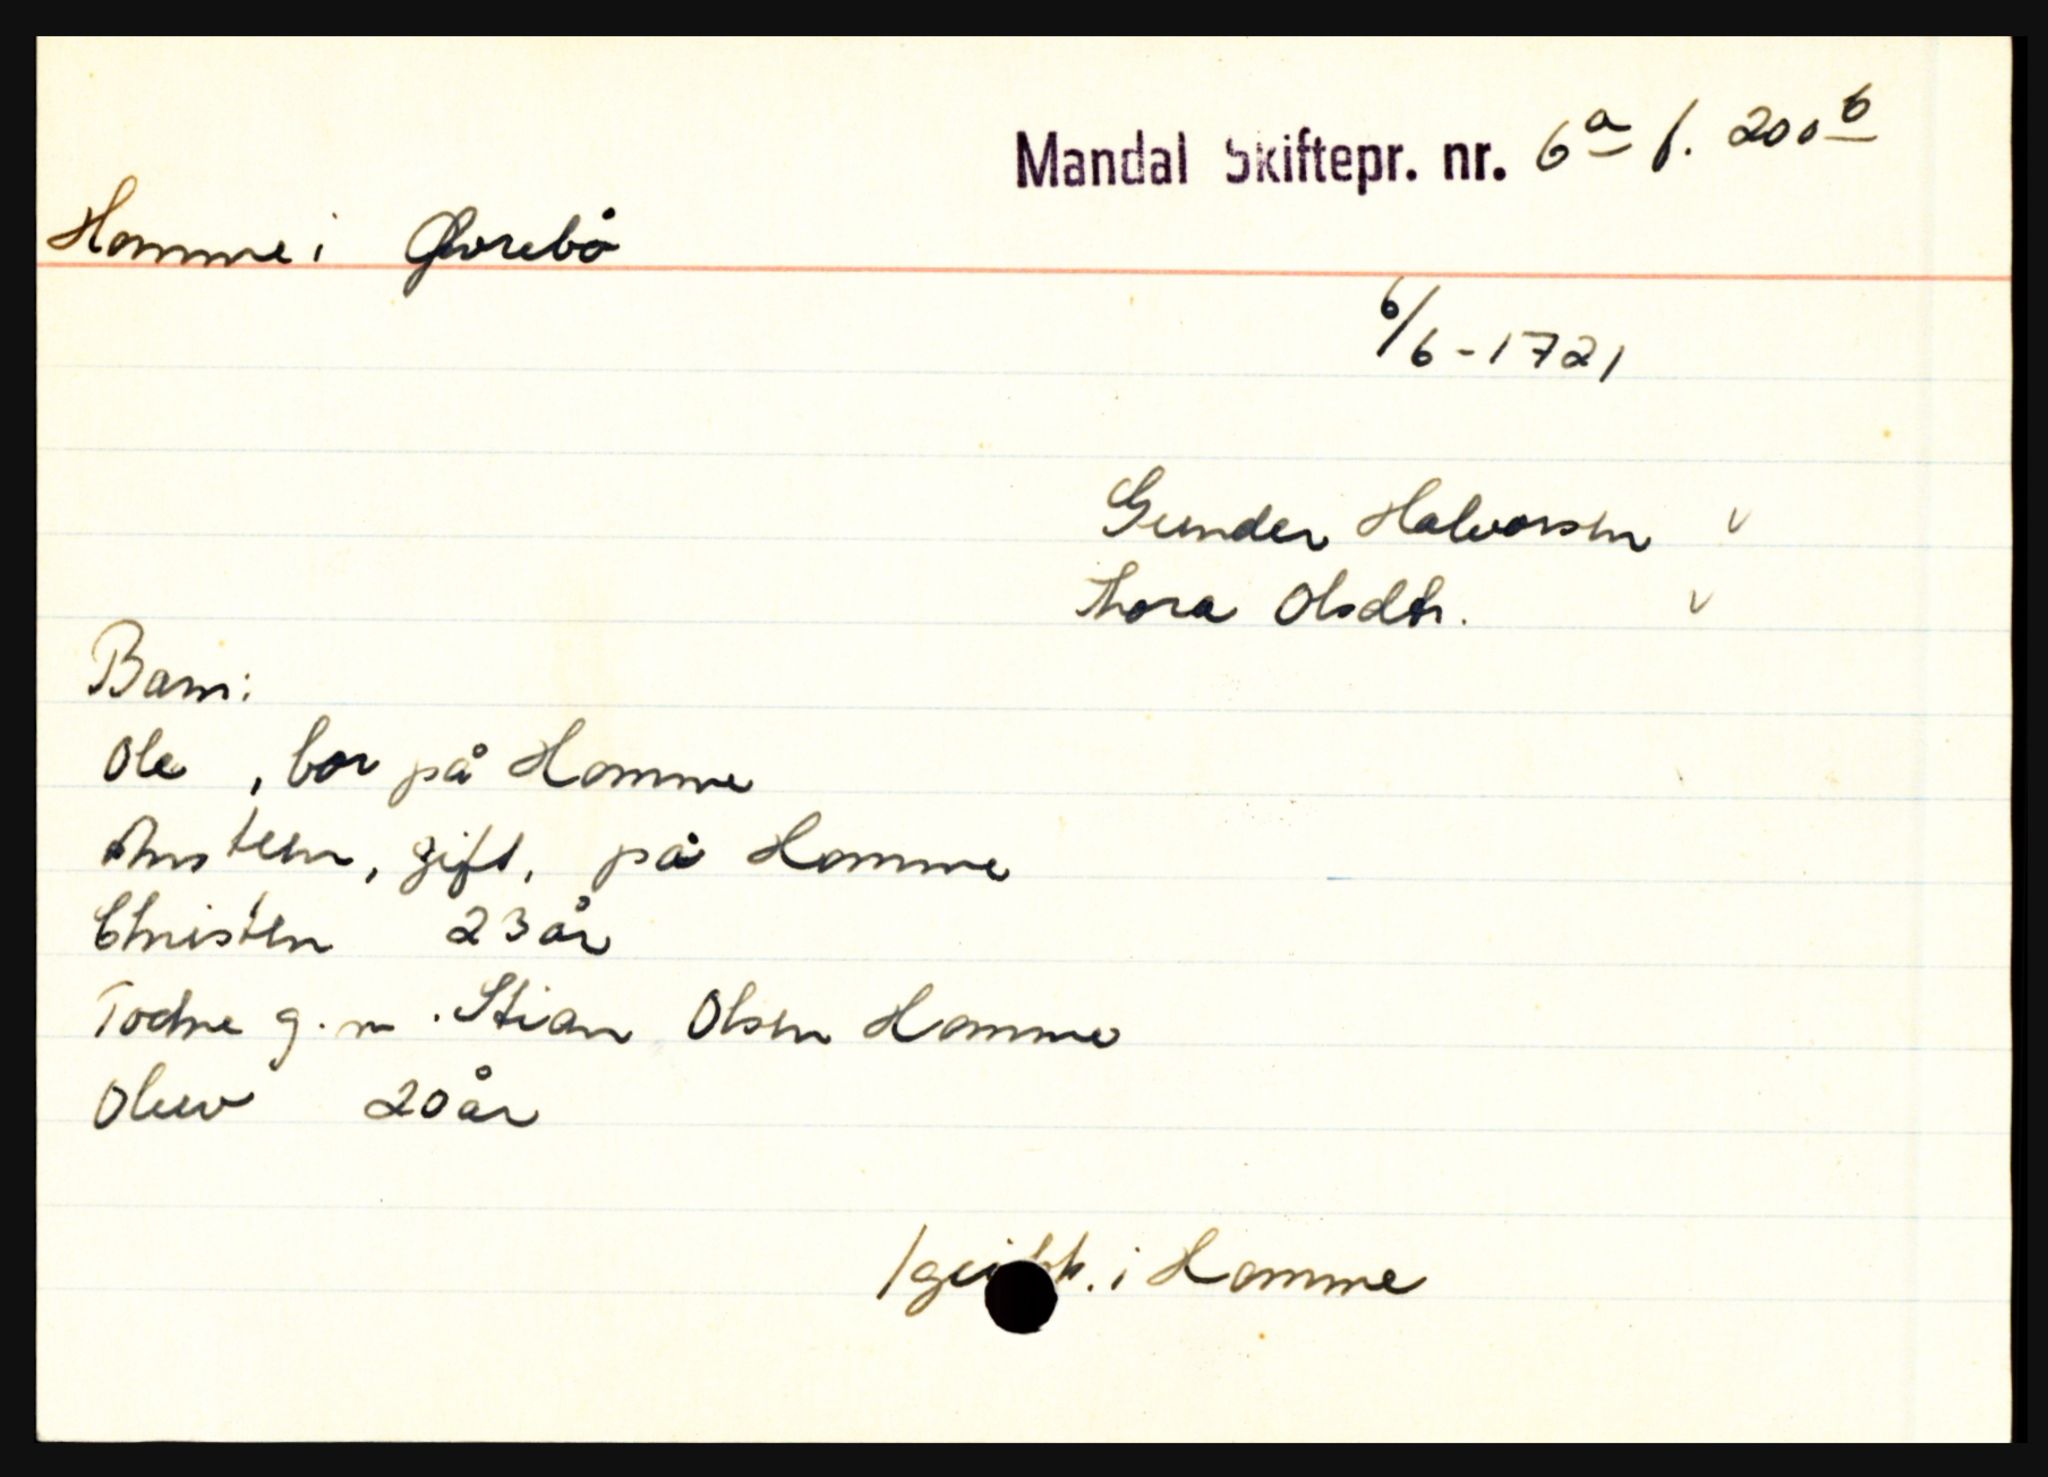 Mandal Skiftepr. nr. 6a f. 200b
Homme i Øvrebø
6/6-1721
Gunder Halvorsen v
Thora Olsdtr. v
Barn:
Ole , bor på Homme
Anstein, gift, på Homme
Christen 23 år
Todne g. m. Stian Olsen Homme
Oluv 20 år
i Homme